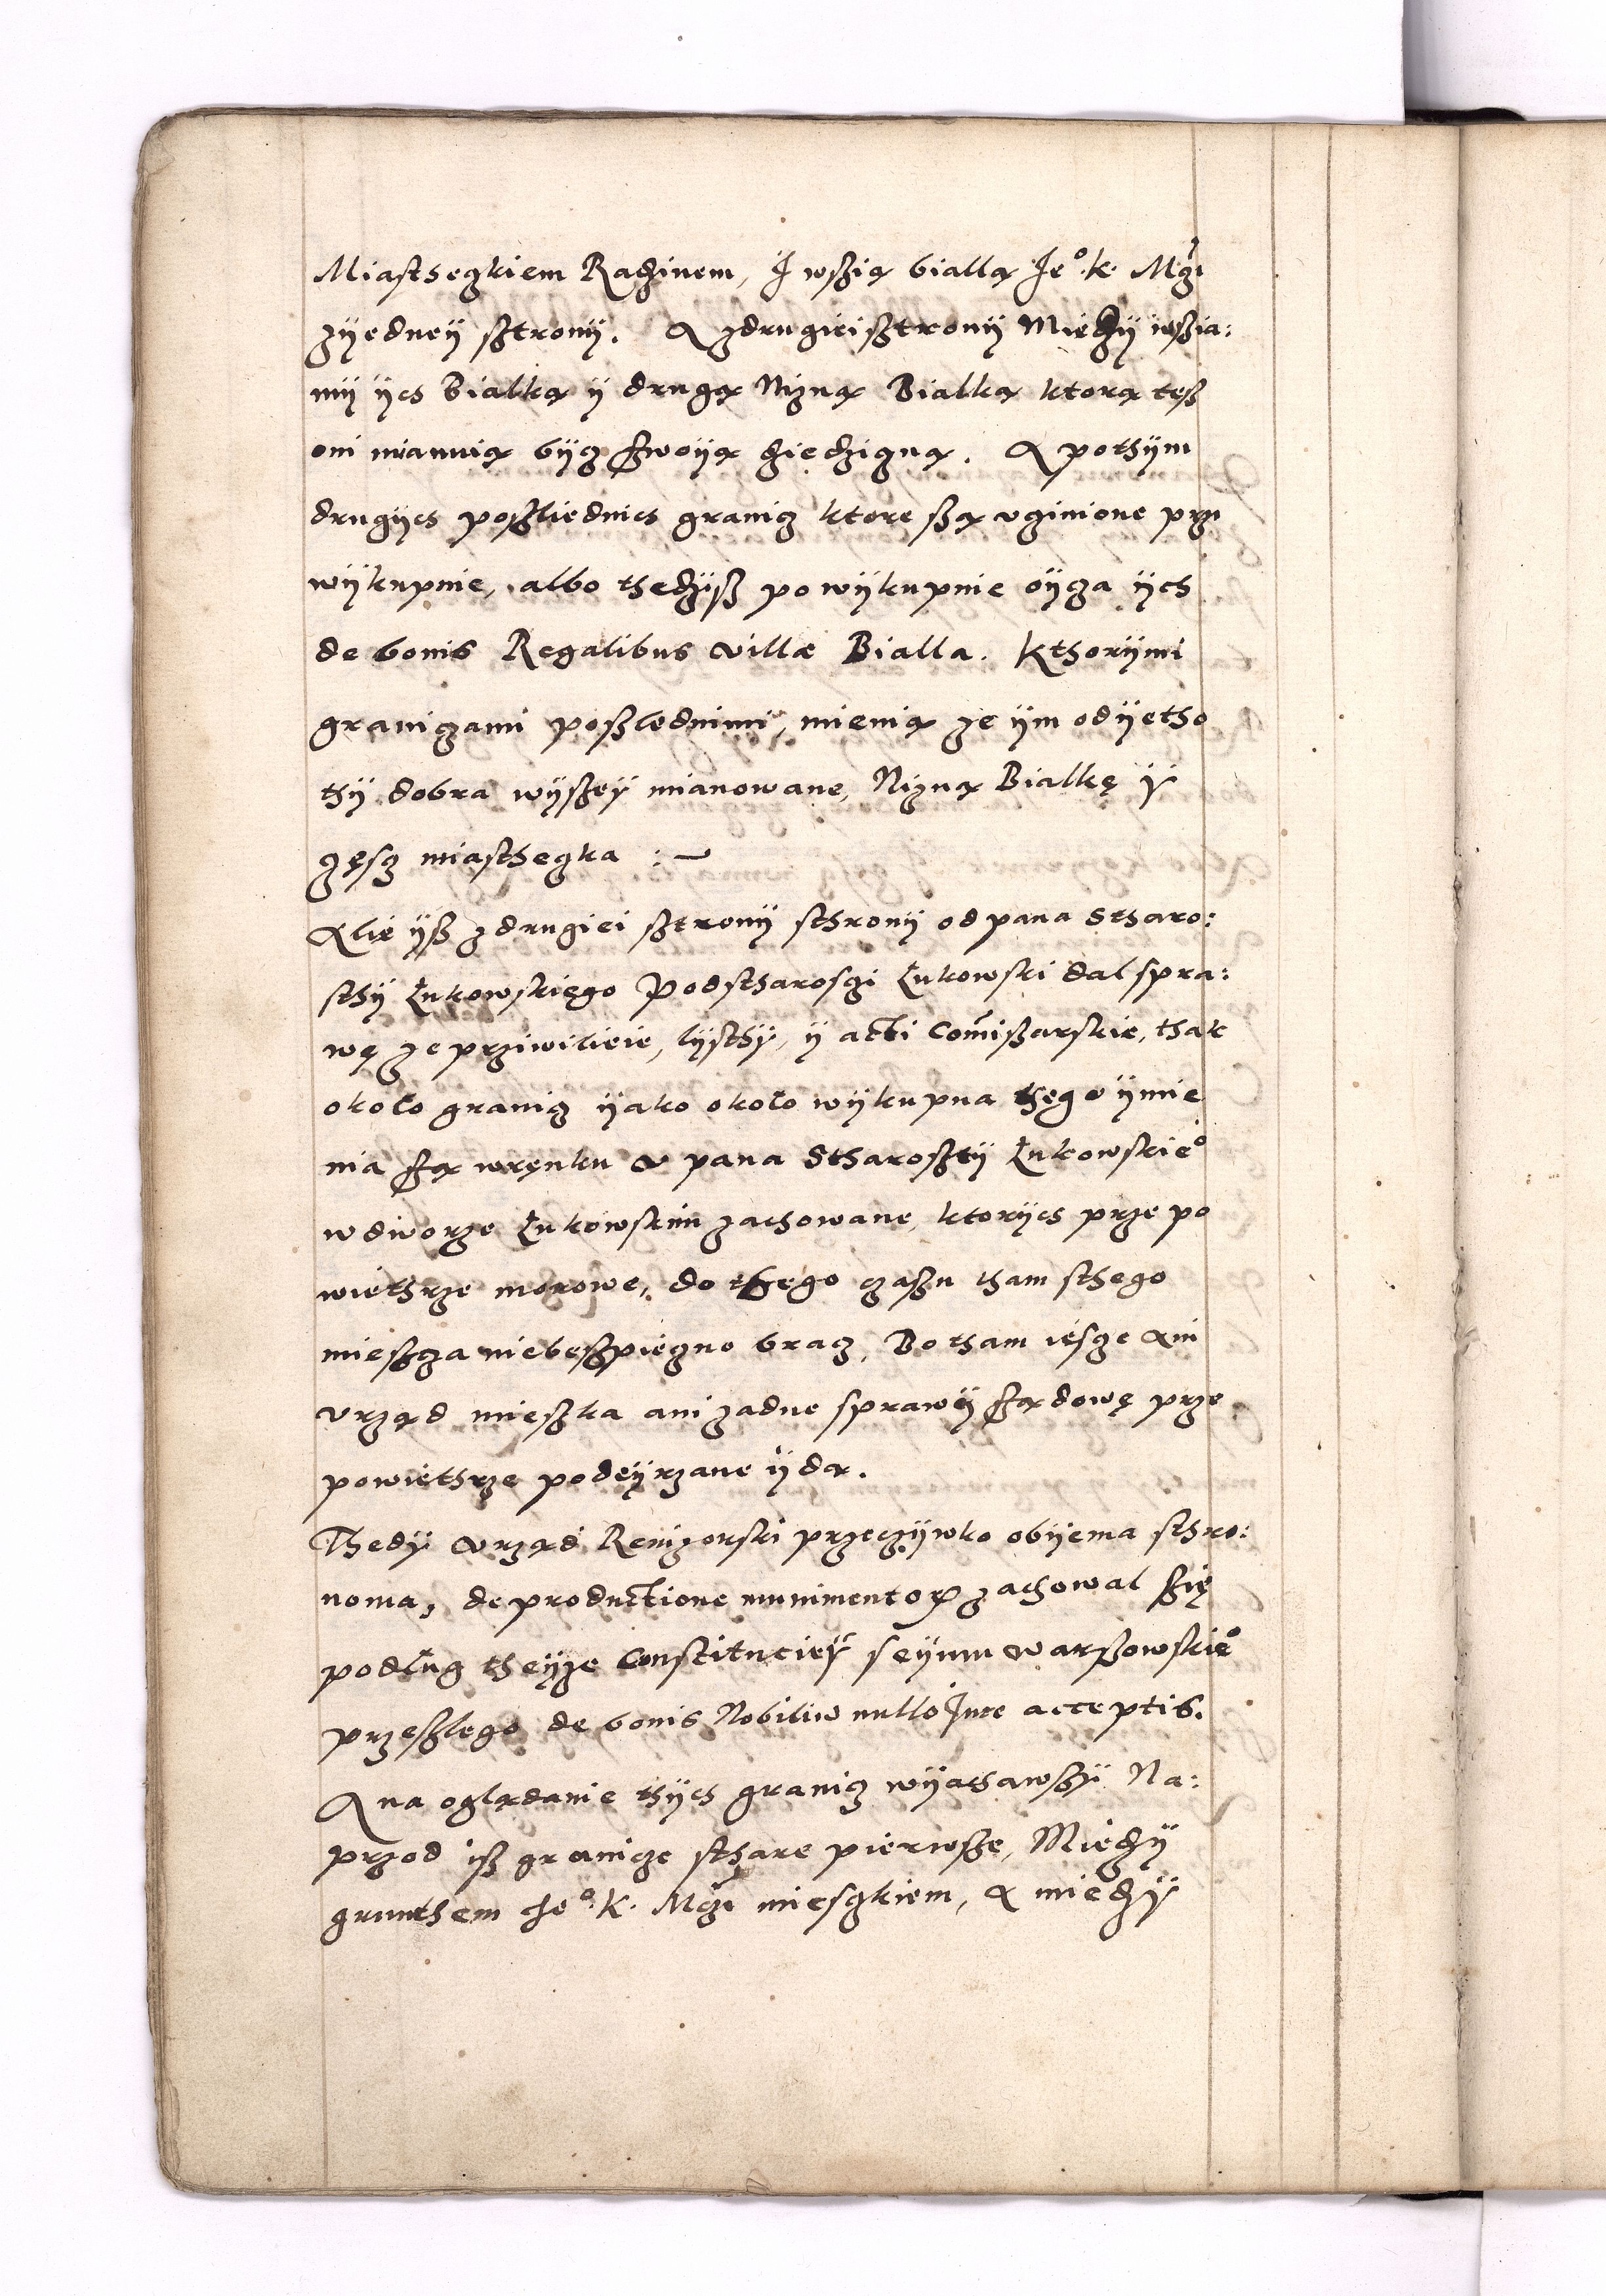 Miastheczkiem Radzinem, J wszią biallą Je°. K. Mczi
zyedney sztrony. A zdrugiei sztrony Miedzy wszia:
my ych Bialką y drugą Nizną Bialką ktorą tesz
oni mianuią bycz szwoyą dziedzizną. A pothym
drugych poszliednich granicz ktore szą vczinione przi
wykupnie, albo thedzisz po wykupnie oycza ych
de bonis Regalibus villæ Bialla. Kthorymi
graniczami poszlednimi, mienią ze ym odyetho
thy dobra wyszey mianowane, Nizną Bialkę y
częscz miastheczka :~
Alie ysz z drugiei sztrony sthrony od pana Stharo:
sthy Łukowskięgo Podstharosczi Łukowski dal spra:
wę ze prziwilieie, lysthy, y acti Com̃iszarskie, thak
około granicz yako około wykupna thęgo ymie
nia szą wręnku v pana Stharoszty Łukowskie°
w dworze Łukowskim zachowane, ktorych prze po
wiethrze morowe, do thego czaszu tham sthego
mieszcza niebeszpieczno bracz, Bo tham iescze ani
vrząd mieszka ani zadne sprawy sządowę prze
powiethrze podeyrzane ydą.
Thedy vrząd Renizorski przeczywko obyema sthro:
noma, de productione munimentor zachowal szię
podług theyze Constituciey seymu Warszowskie°
przeszlego de bonis Nobiliu nullo Jure acceptis.
A na oglądanie thych granicz wyachawszy Na:
przod isz granicze sthare pierwsze, Miedzy
grunthem Je°. K. Mczi miesczkiem, a miedzy